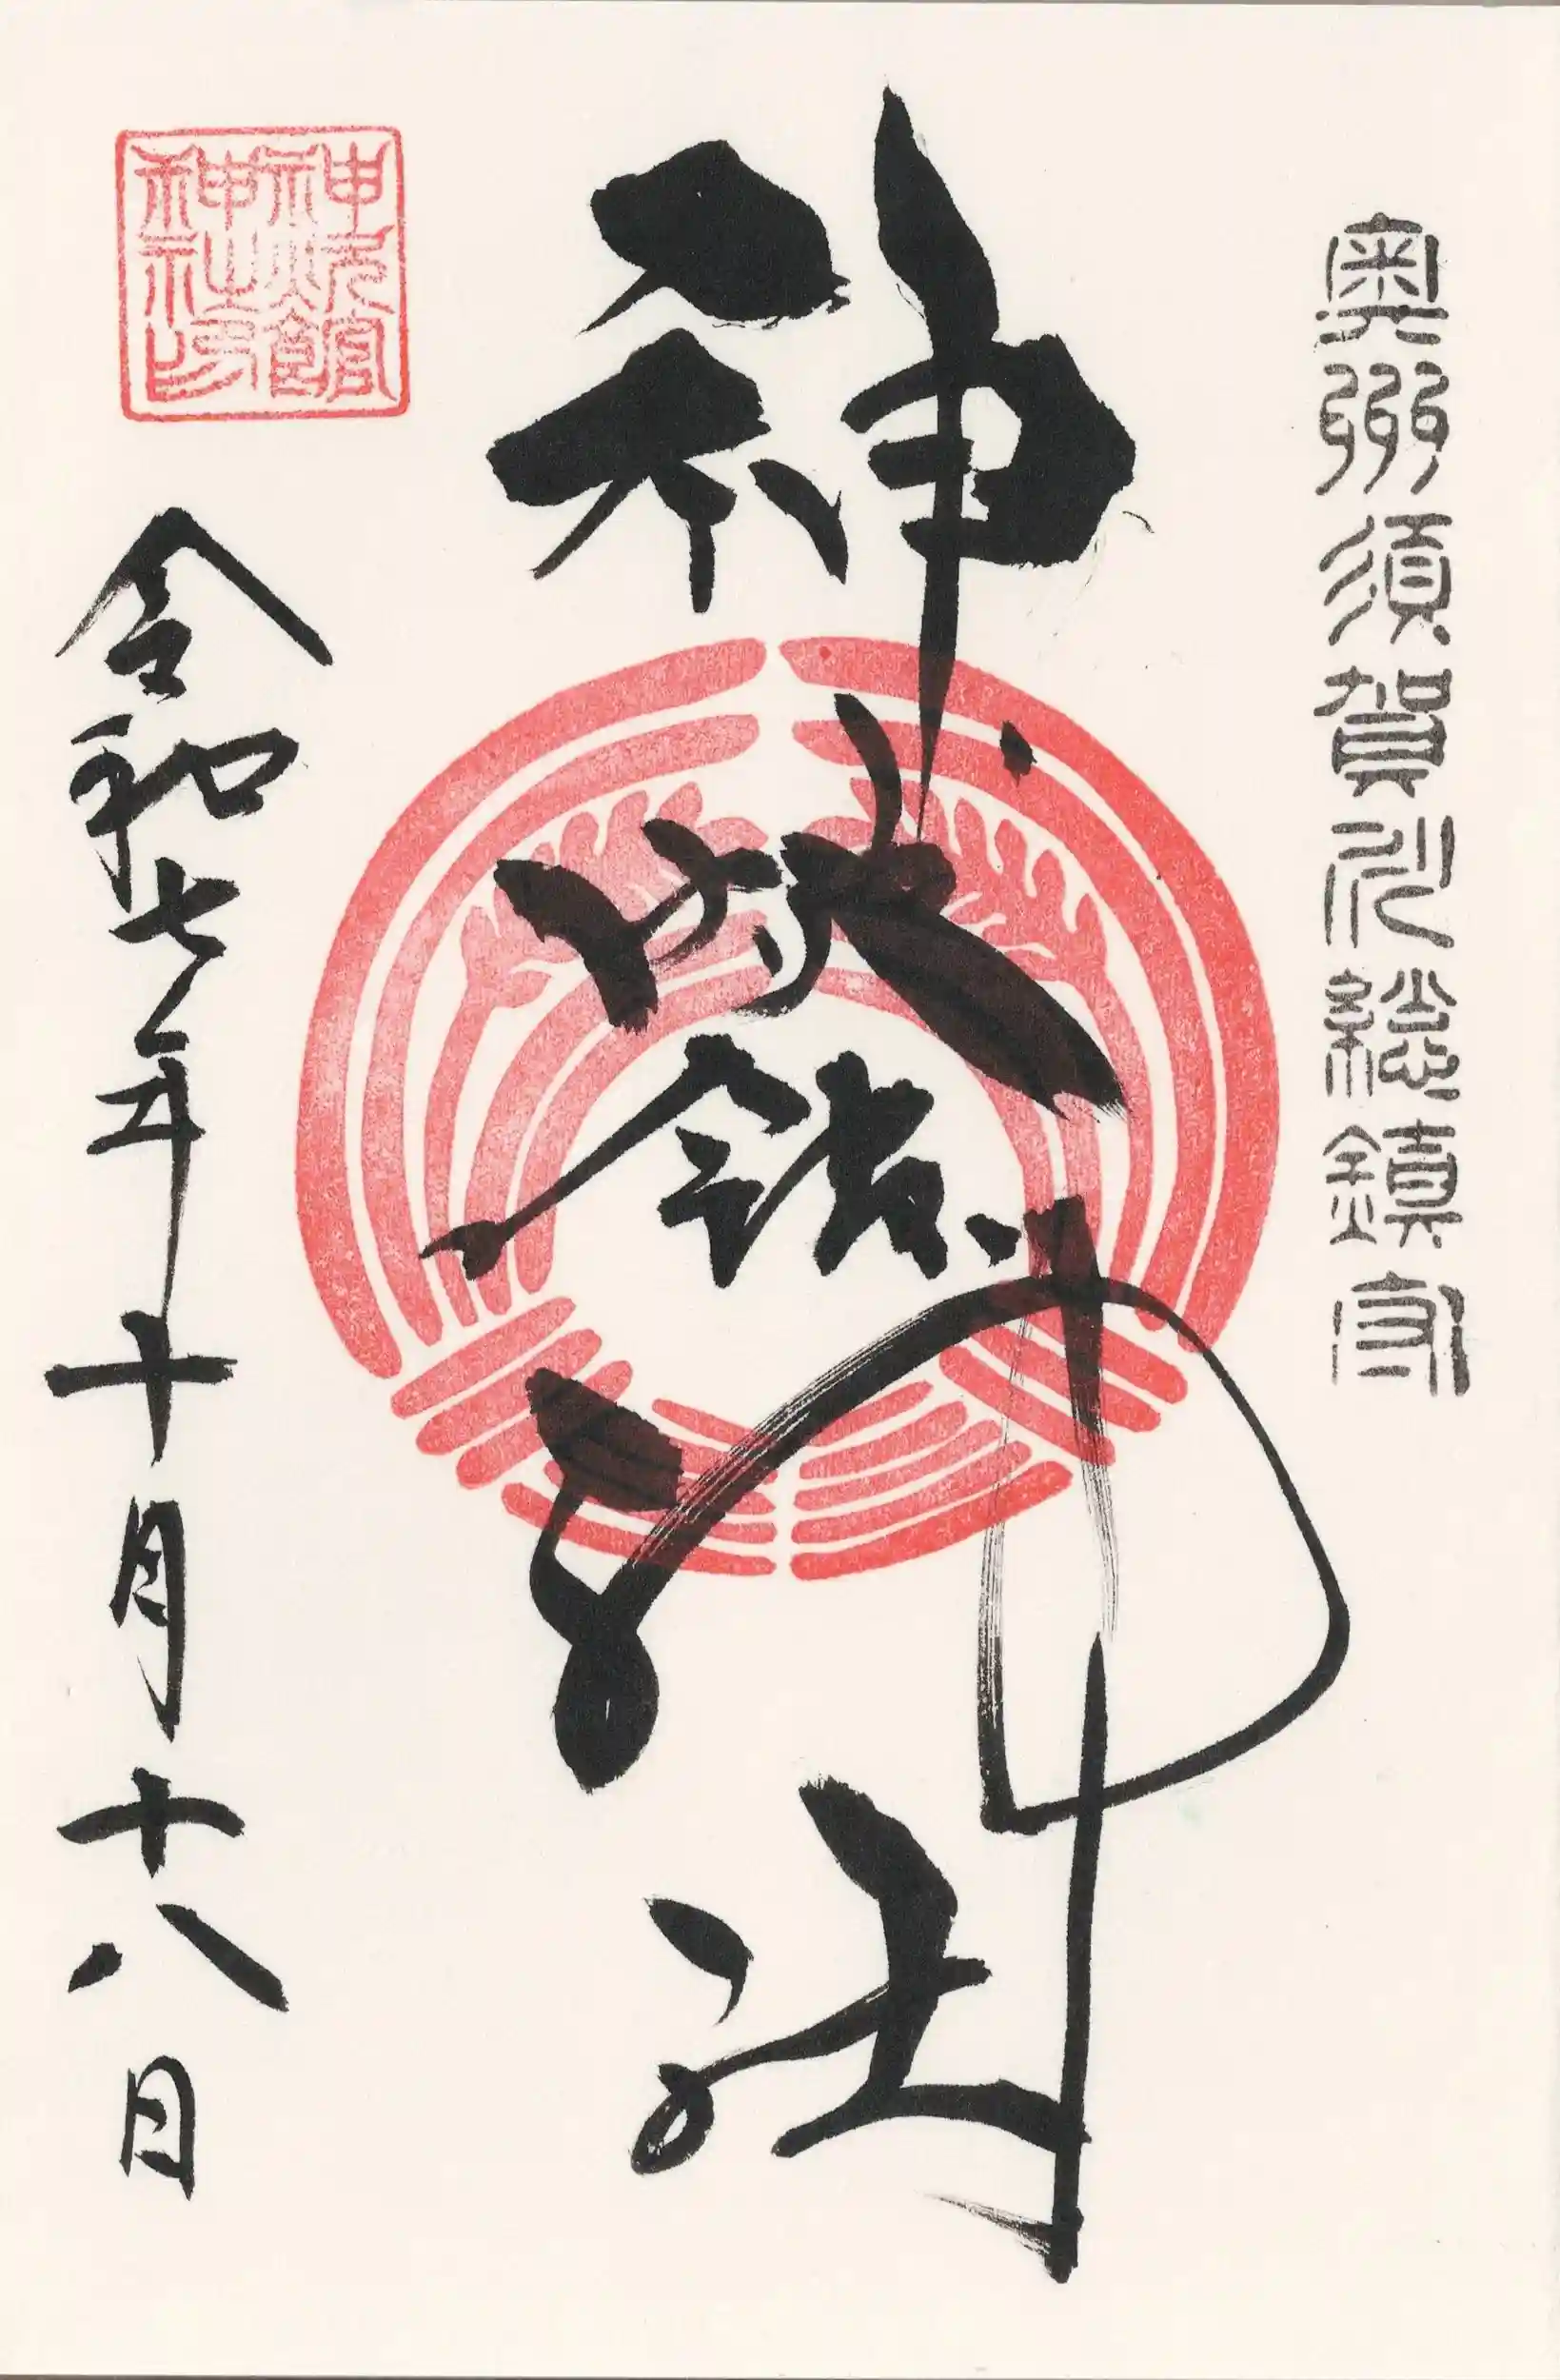 奥州須賀川総鎮守
神炊館神社
神炊館神社印
令和七年十月十八日